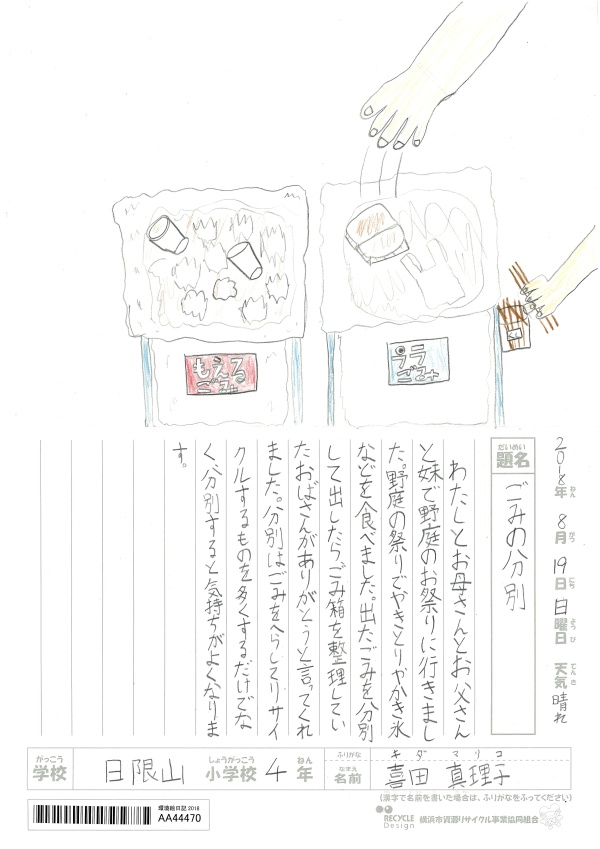 もえる
ごみ
プラ
ごみ
2018年ねん 8月がつ 19日にち 日曜日ようび 天気てんき 晴れ
題名だいめい ごみの分別
わたしとお母さんとお父さん
と妹で野庭のお祭りに行きまし
た。野庭の祭りでやきとりやかき氷
などを食べました。出たごみを分別
して出したらごみ箱を整理してい
たおばさんがありがとうと言ってくれ
ました。分別はごみをへらしてリサイ
クルするものを多くするだけでな
く分別すると気持ちがよくなりま
す。
学校がっこう 日限山 小学校しょうがっこう 4 年ねん
ふりがな キダ マリコ
名前なまえ 喜田 真理子
(漢字で名前を書いた場合は、ふりがなをふってください)
環境絵日記 2018
AA44470
RECYCLE Design 横浜市資源リサイクル事業協同組合